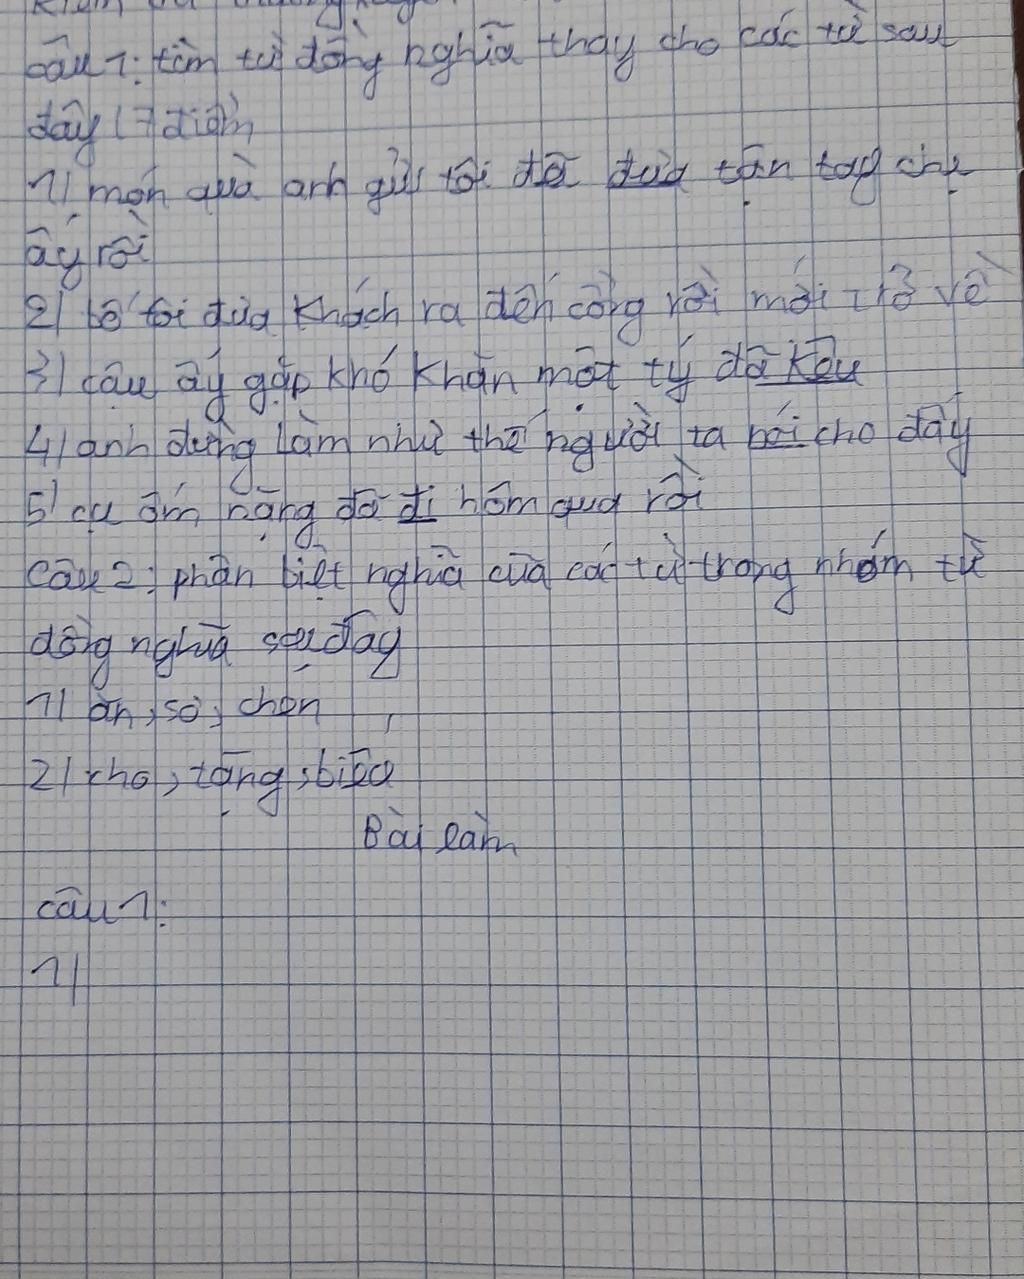 câu 1: tìm từ đồng nghĩa thay cho các từ sau
đây (7 điểm
1) món quà anh gửi tôi đã đưa tận tay chị
ấy rồi
2) bố tôi đưa khách ra đến cổng rồi mới trở về
3) cậu ấy gặp khó khăn một tý đã kêu
4) anh đừng làm như thế người ta nói cho đấy
5) cụ ốm nặng đã đi hôm qua rồi
Câu 2: phân biệt nghĩa của các từ trong nhóm từ
đồng nghĩa sau đây
1) ăn, sơi, chén
2) cho, tặng, biếu
Bài làm
câu 1:
1)